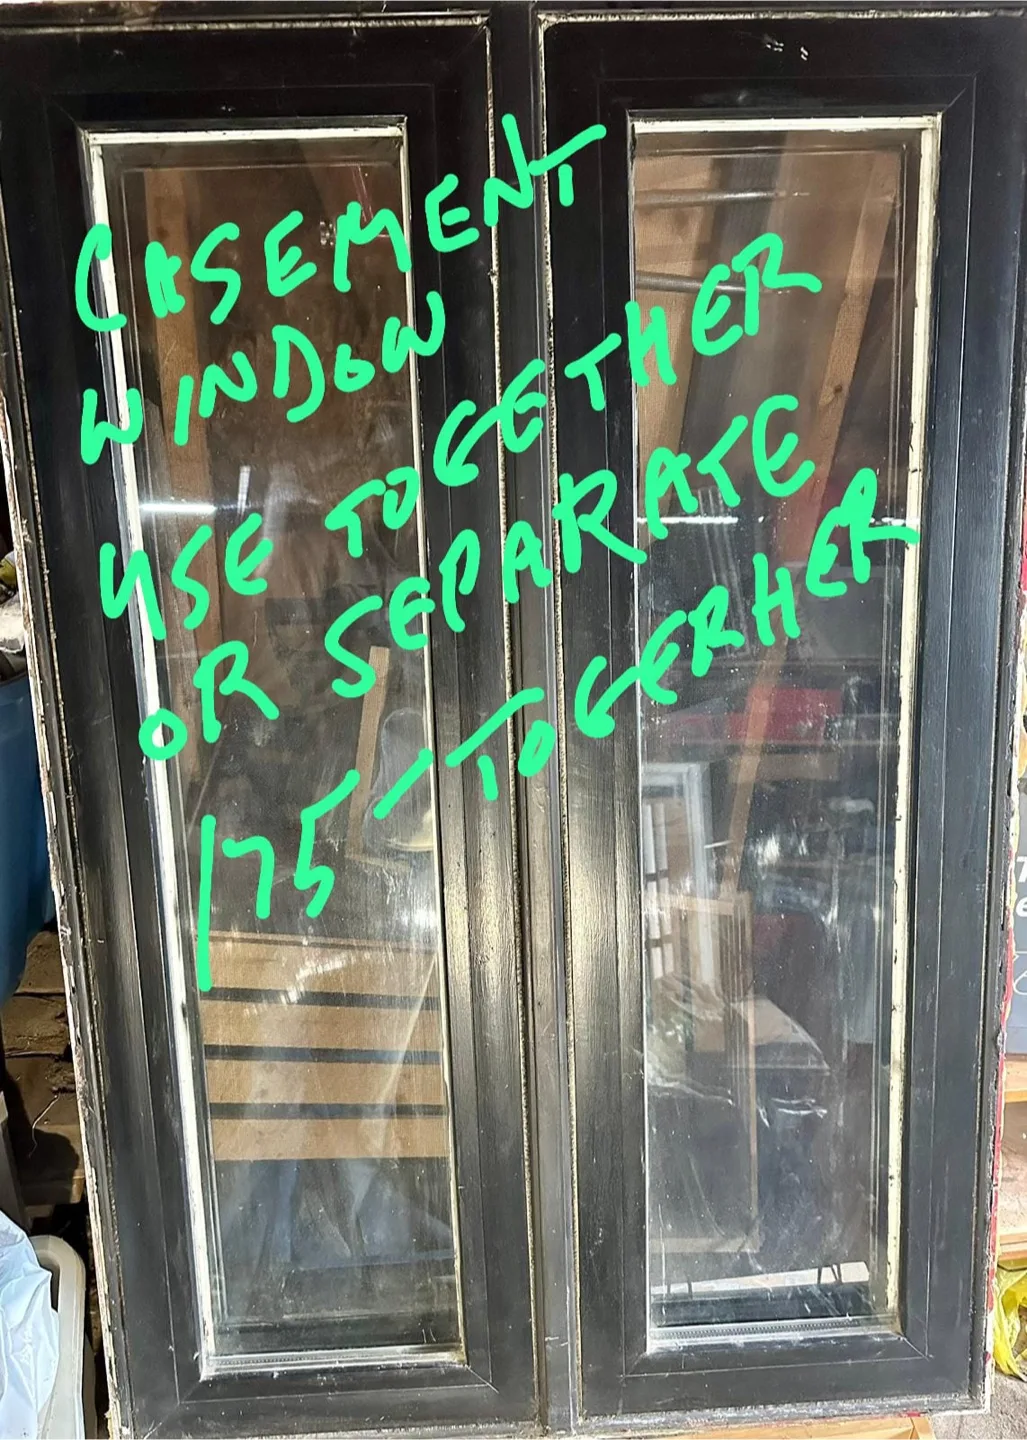 CASEMENT
WINDOW
USE TOGETHER
OR SEPARATE
175 - TOGERHER